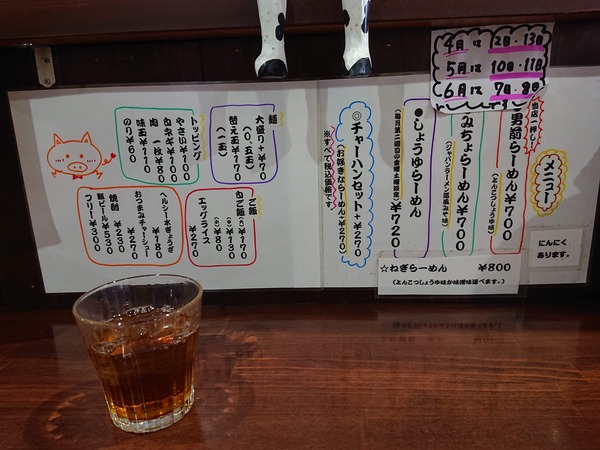 4月は 2日・13日
5月は 10日・11日
6月は 7日 8日
メニュー
当店一押し!
男節らーめん ¥700
(とんこつしょうゆ味)
みちょらーめん ¥700
(ジャパンラーメン 国風みそ味)
●しょうゆらーめん ¥720
◎チャーハンセット +¥270
(お好きならーめんに +¥270)
※すべて税込価格です。
にんにく
あります。
☆ねぎらーめん ¥800
(とんこつしょうゆ味か味噌味選べます。)
麺
大盛り +¥70
(0、五玉)
替え玉 ¥170
(一玉)
トッピング
やさい ¥100
白ネギ ¥100
肉 一枚 ¥80
味玉 ¥110
のり ¥60
ご飯
白ご飯(中) ¥170
エッグライス
¥270
ヘルシー水ぎょうざ
¥180
おつまみチャーシュー
¥270
焼酎 ¥230
瓶ビール ¥530
フリー ¥300